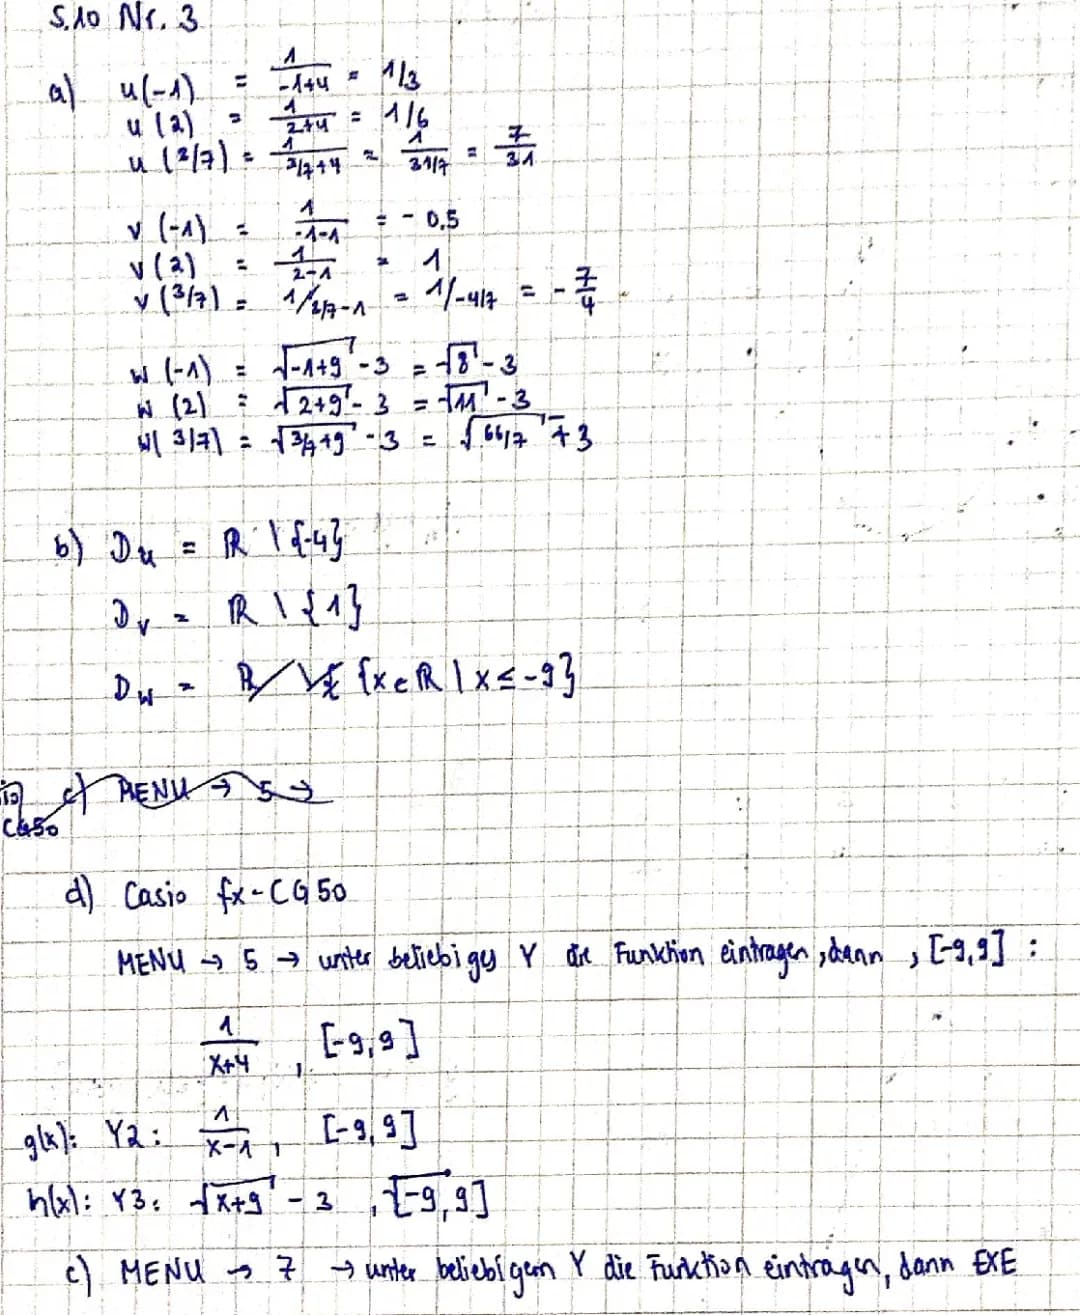 S.10 Nr. 3
a) u(-1) = 1/(-1+4) = 1/3
u(2) = 1/(2+4) = 1/6
u(3/7) = 1/(3/7+4) = 1/(31/7) = 7/31
v(-1) = 1/(-1-1) = -0,5
v(2) = 1/(2-1) = 1
v(3/7) = 1/(3/7-1) = 1/(-4/7) = -7/4
w(-1) = √(-1+9) - 3 = √8 - 3
w(2) = √(2+9) - 3 = √11 - 3
w(3/7) = √(3/7+9) - 3 = √(66/7) - 3
b) Du = ℝ \ {-4}
Dv = ℝ \ {1}
Dw = ℝ \ {x∈ℝ | x ≤ -9}
c) MENU → 5 →
CG50
d) Casio fx-CG 50
MENU → 5 → unter beliebigy Y die Funktion eintragen, dann , [-9,9] :
1/(x+4) , [-9,9]
g(x): Y2: 1/(x-1) , [-9,9]
h(x): Y3: √(x+9) - 3 , [-9,9]
c) MENU → 7 → unter beliebigem Y die Funktion eintragen, dann EXE